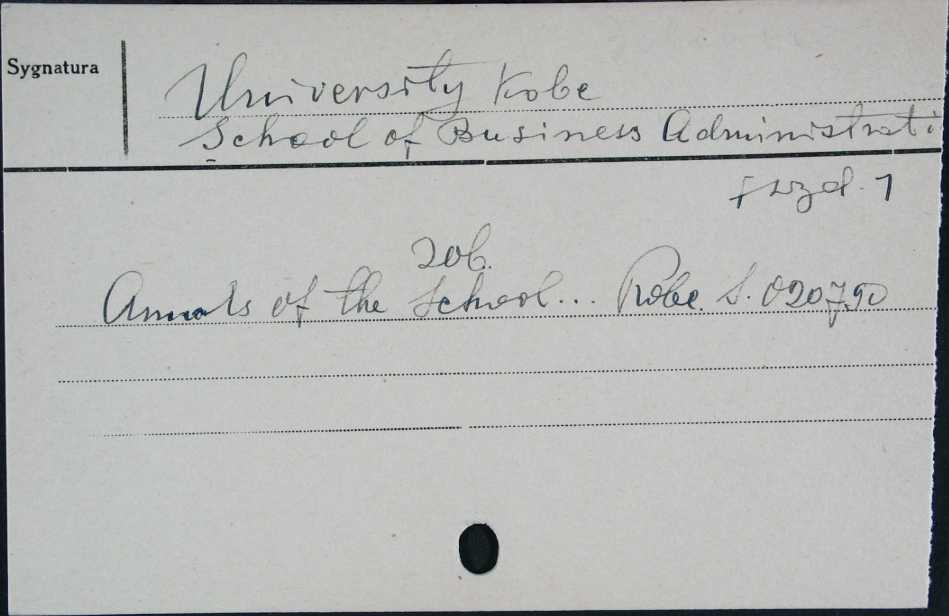 Sygnatura
University Kobe
School of Business Administrati
wyd. 1
zob.
Annals of the School... Kobe. S. 020790